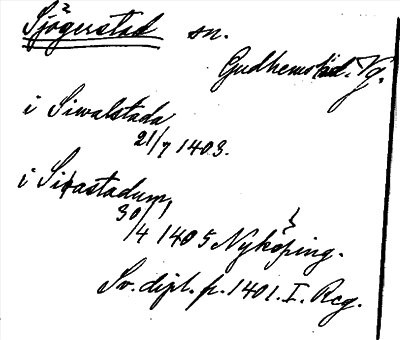 Sjögerstad sn.
Gudhems hd. Vg.
i Siwalstada
21/7 1403.
i Sixastadum,
30/4 1405 Nyköping.
Sv. dipl. fr. 1401. I. Reg.